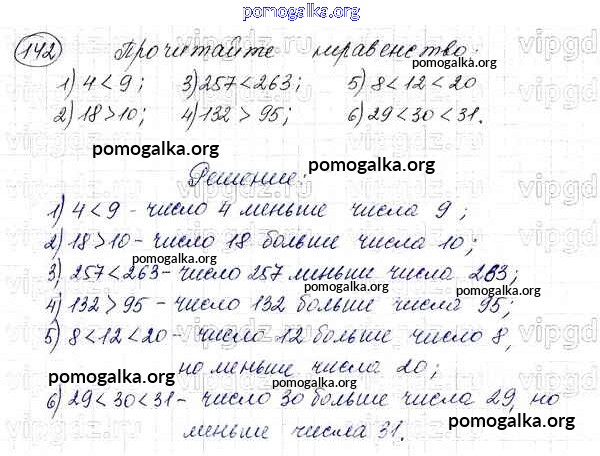 pomogalka.org
142 Прочитайте неравенство:
1) 4 < 9; 3) 257 < 263; 5) 8 < 12 < 20
2) 18 > 10; 4) 132 > 95; 6) 29 < 30 < 31.
pomogalka.org
pomogalka.org
pomogalka.org
Решение:
1) 4 < 9 - число 4 меньше числа 9;
2) 18 > 10 - число 18 больше числа 10;
3) 257 < 263 - число 257 меньше числа 263;
4) 132 > 95 - число 132 больше числа 95;
5) 8 < 12 < 20 - число 12 больше числа 8,
но меньше числа 20;
pomogalka.org
6) 29 < 30 < 31 - число 30 больше числа 29, но
pomogalka.org
меньше числа 31.